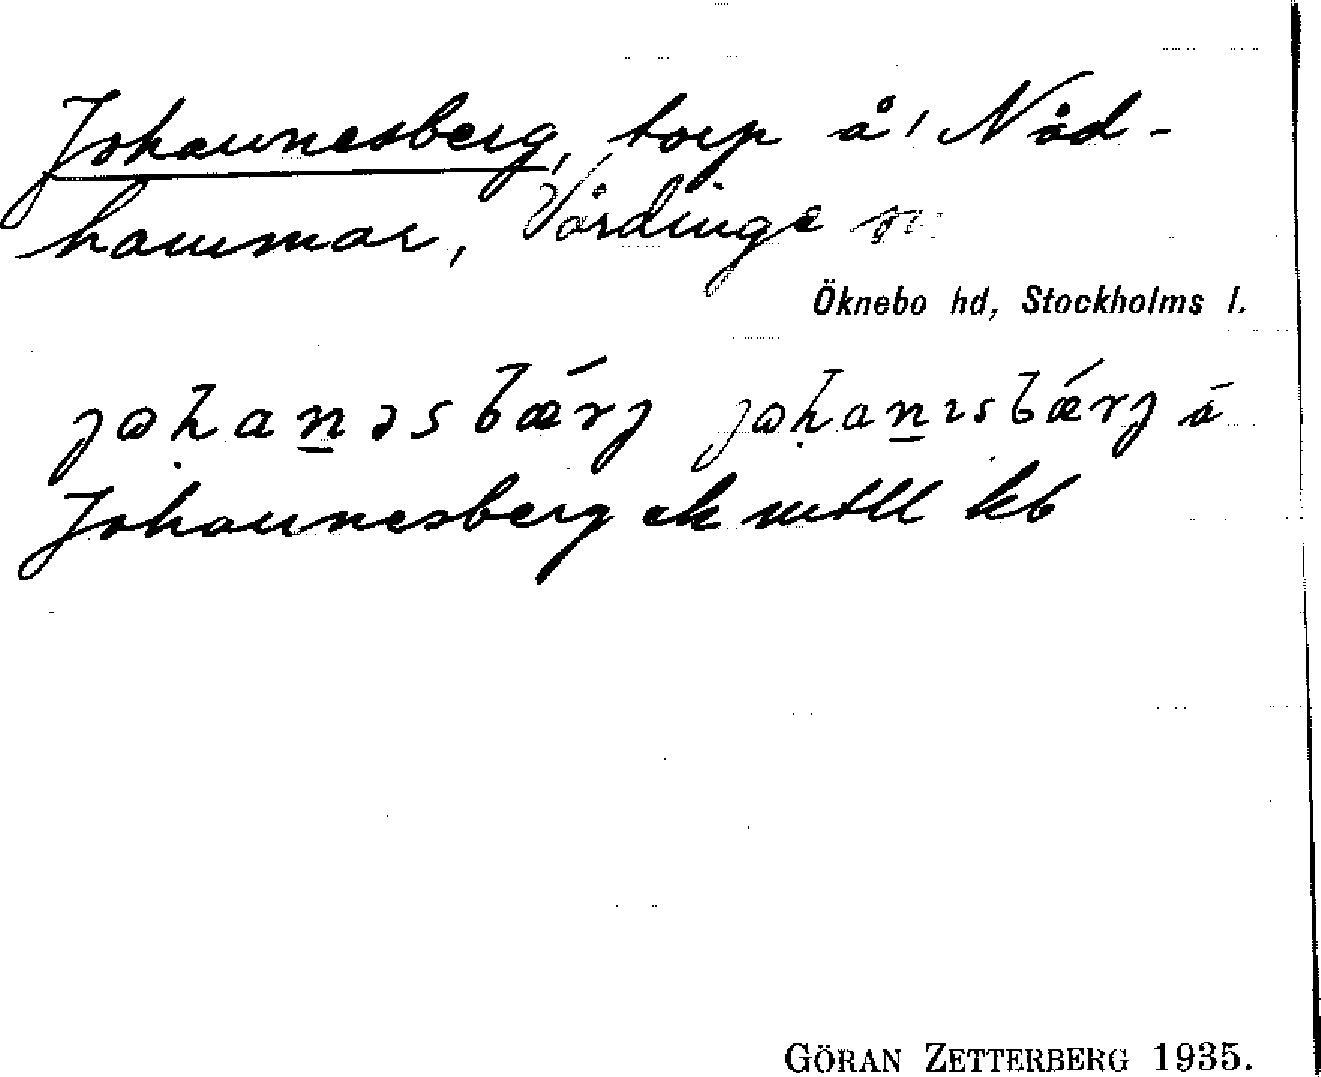 Johannesberg, torp å Nåd-
hammar, Vårdinge sn
Öknebo hd, Stockholms l.
johanəsbærj johanısbærj á
Johannesberg ek mtll kb
GÖRAN ZETTERBERG 1935.